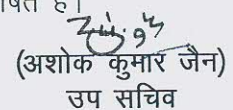 षित है।
(अशोक कुमार जैन)
उप सचिव